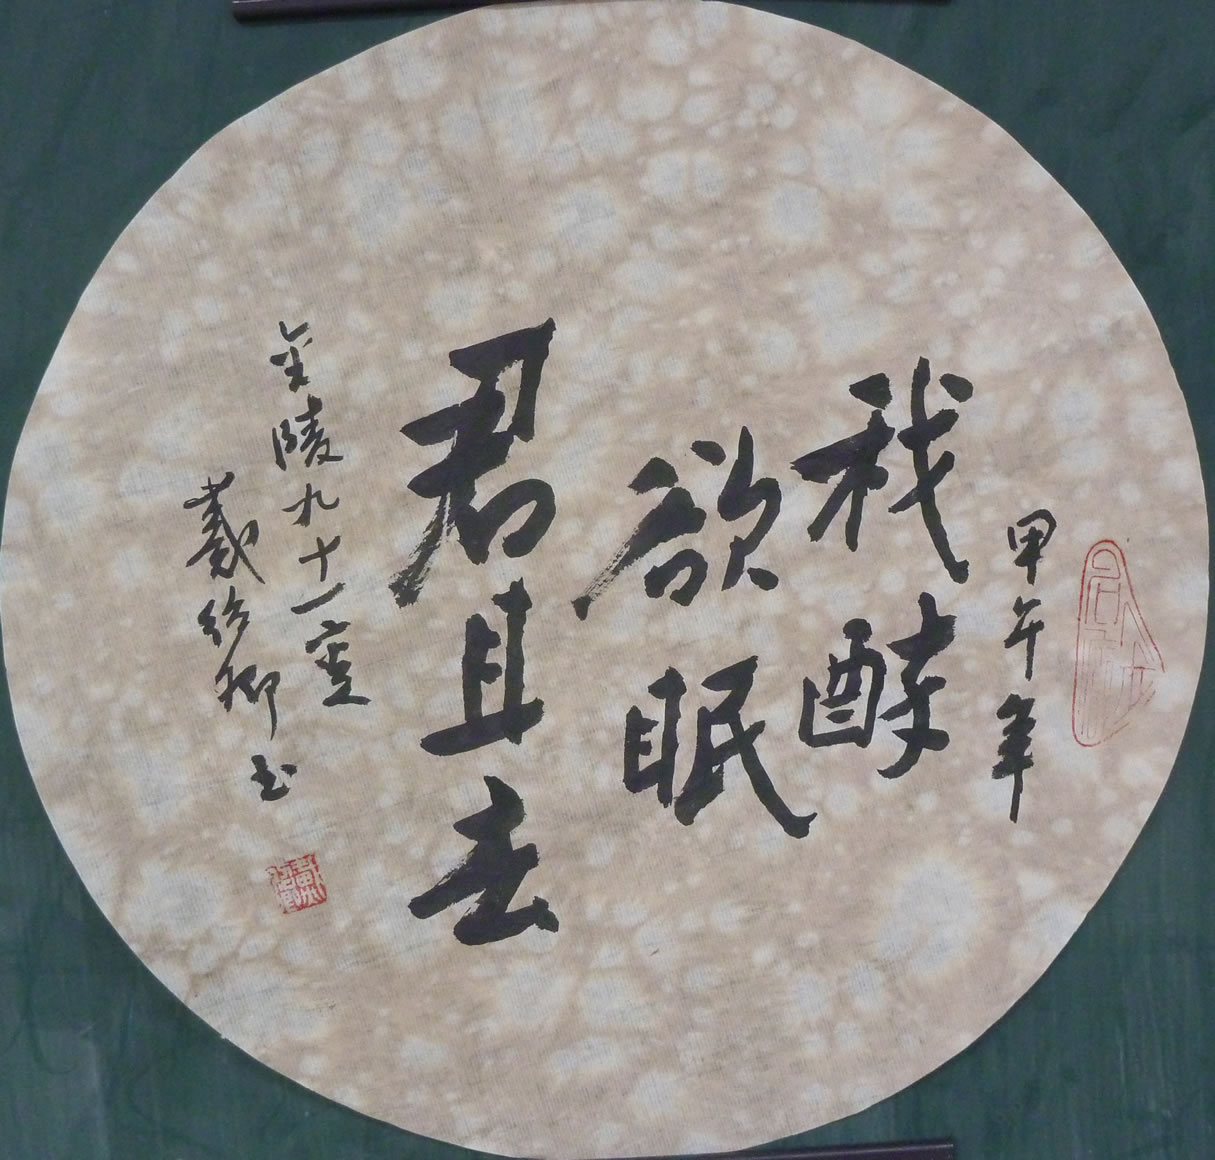 甲午年
我醉
欲眠
君且去
金陵九十一
戴卿书